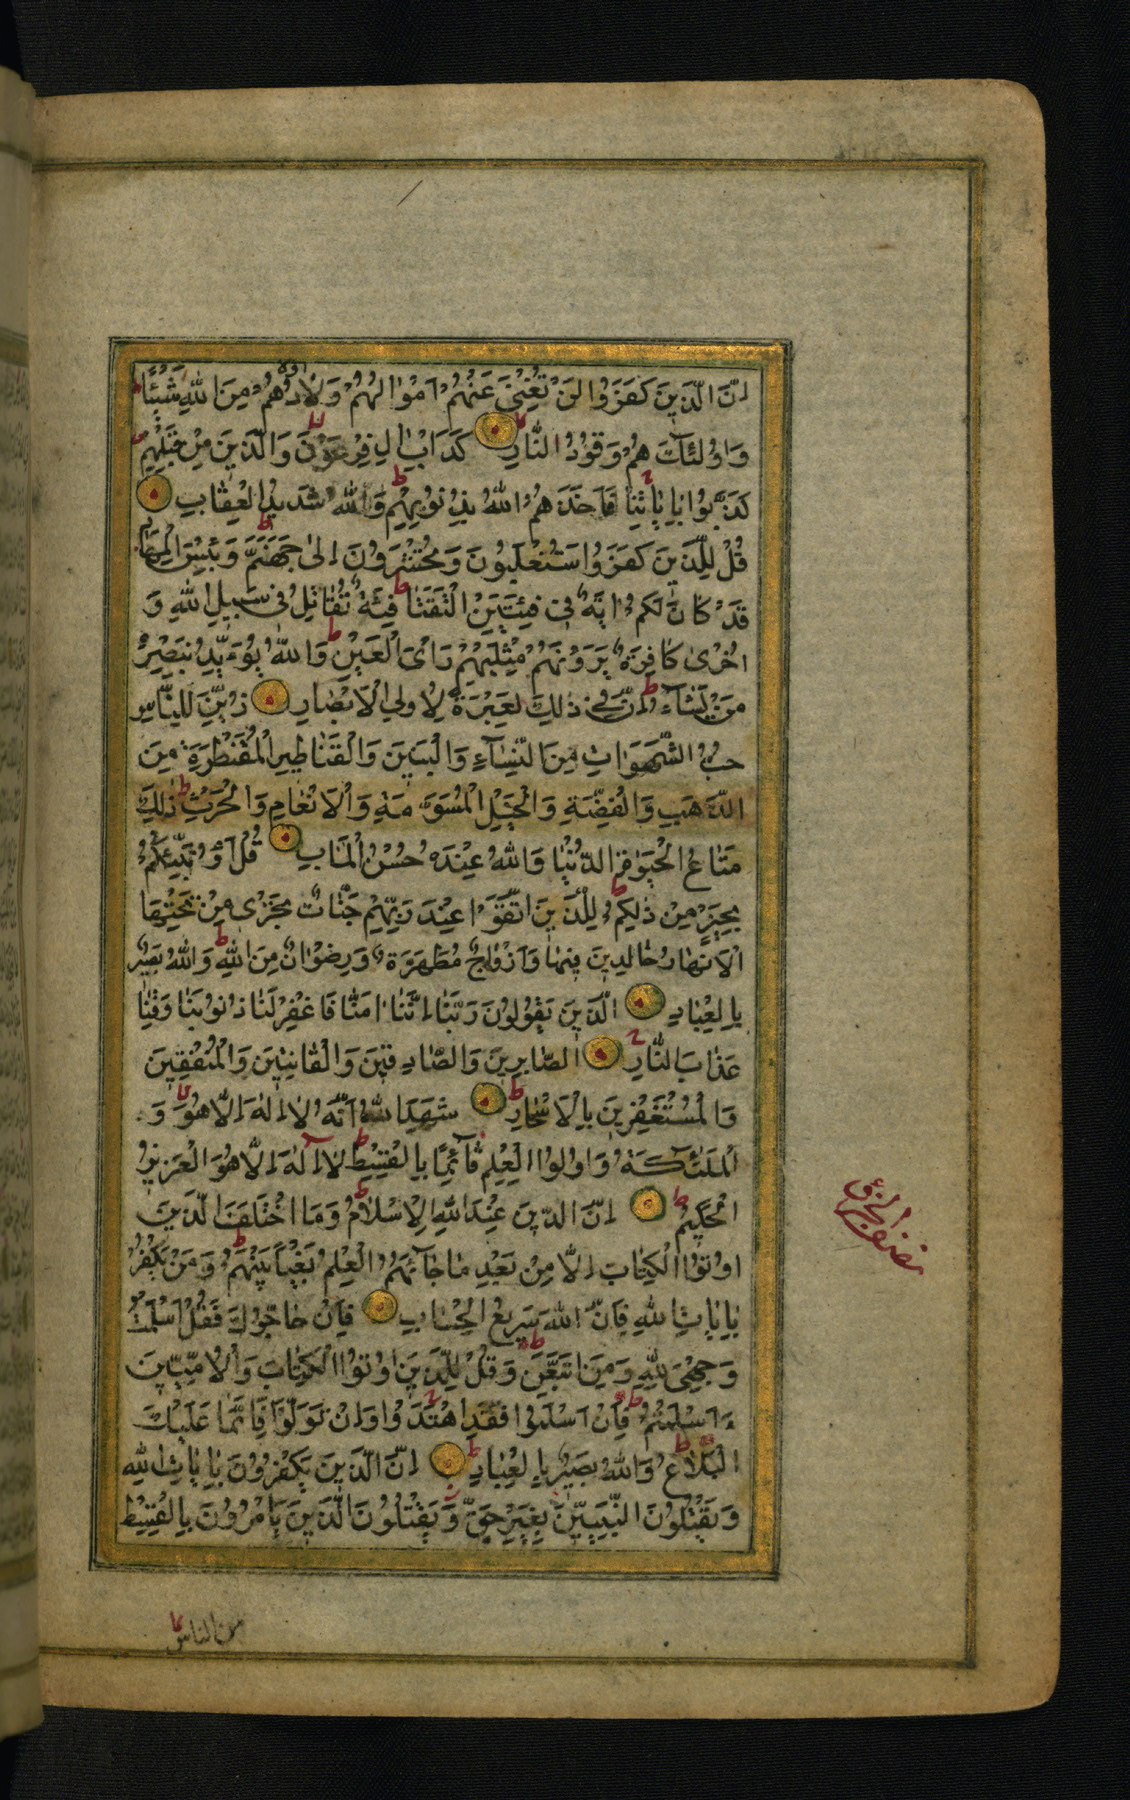 اِنَّ الَّذِينَ كَفَرُوا لَنْ تُغْنِيَ عَنْهُمْ اَمْوَالُهُمْ وَلَا اَوْلَادُهُمْ مِنَ اللهِ شَيْئًا
وَاُولٰئِكَ هُمْ وَقُودُ النَّارِ كَدَاْبِ اٰلِ فِرْعَوْنَ وَالَّذِينَ مِنْ قَبْلِهِمْ
كَذَّبُوا بِاٰيَاتِنَا فَاَخَذَهُمُ اللهُ بِذُنُوبِهِمْ وَاللهُ شَدِيدُ الْعِقَابِ
قُلْ لِلَّذِينَ كَفَرُوا سَتُغْلَبُونَ وَتُحْشَرُونَ اِلٰى جَهَنَّمَ وَبِئْسَ الْمِهَادُ
قَدْ كَانَ لَكُمْ اٰيَةٌ فِي فِئَتَيْنِ الْتَقَتَا فِئَةٌ تُقَاتِلُ فِي سَبِيلِ اللهِ وَ
اُخْرٰى كَافِرَةٌ يَرَوْنَهُمْ مِثْلَيْهِمْ رَاْيَ الْعَيْنِ وَاللهُ يُؤَيِّدُ بِنَصْرِهِ
مَنْ يَشَآءُ اِنَّ فِي ذٰلِكَ لَعِبْرَةً لِاُولِي الْاَبْصَارِ زُيِّنَ لِلنَّاسِ
حُبُّ الشَّهَوَاتِ مِنَ النِّسَآءِ وَالْبَنِينَ وَالْقَنَاطِيرِ الْمُقَنْطَرَةِ مِنَ
الذَّهَبِ وَالْفِضَّةِ وَالْخَيْلِ الْمُسَوَّمَةِ وَالْاَنْعَامِ وَالْحَرْثِ ذٰلِكَ
مَتَاعُ الْحَيٰوةِ الدُّنْيَا وَاللهُ عِنْدَهُ حُسْنُ الْمَاٰبِ قُلْ اَؤُنَبِّئُكُمْ
بِخَيْرٍ مِنْ ذٰلِكُمْ لِلَّذِينَ اتَّقَوْا عِنْدَ رَبِّهِمْ جَنَّاتٌ تَجْرِي مِنْ تَحْتِهَا
الْاَنْهَارُ خَالِدِينَ فِيهَا وَاَزْوَاجٌ مُطَهَّرَةٌ وَرِضْوَانٌ مِنَ اللهِ وَاللهُ بَصِيرٌ
بِالْعِبَادِ الَّذِينَ يَقُولُونَ رَبَّنَا اِنَّنَا اٰمَنَّا فَاغْفِرْ لَنَا ذُنُوبَنَا وَقِنَا
عَذَابَ النَّارِ الصَّابِرِينَ وَالصَّادِقِينَ وَالْقَانِتِينَ وَالْمُنْفِقِينَ
وَالْمُسْتَغْفِرِينَ بِالْاَسْحَارِ شَهِدَ اللهُ اَنَّهُ لَا اِلٰهَ اِلَّا هُوَ وَ
الْمَلٰئِكَةُ وَاُولُوا الْعِلْمِ قَآئِمًا بِالْقِسْطِ لَا اِلٰهَ اِلَّا هُوَ الْعَزِيزُ
الْحَكِيمُ اِنَّ الدِّينَ عِنْدَ اللهِ الْاِسْلَامُ وَمَا اخْتَلَفَ الَّذِينَ
اُوتُوا الْكِتَابَ اِلَّا مِنْ بَعْدِ مَا جَآءَهُمُ الْعِلْمُ بَغْيًا بَيْنَهُمْ وَمَنْ يَكْفُرْ
بِاٰيَاتِ اللهِ فَاِنَّ اللهَ سَرِيعُ الْحِسَابِ فَاِنْ حَاجُّوكَ فَقُلْ اَسْلَمْتُ
وَجْهِيَ لِلّٰهِ وَمَنِ اتَّبَعَنِ وَقُلْ لِلَّذِينَ اُوتُوا الْكِتَابَ وَالْاُمِّيِّينَ
ءَاَسْلَمْتُمْ فَاِنْ اَسْلَمُوا فَقَدِ اهْتَدَوْا وَاِنْ تَوَلَّوْا فَاِنَّمَا عَلَيْكَ
الْبَلَاغُ وَاللهُ بَصِيرٌ بِالْعِبَادِ اِنَّ الَّذِينَ يَكْفُرُونَ بِاٰيَاتِ اللهِ
وَيَقْتُلُونَ النَّبِيِّينَ بِغَيْرِ حَقٍّ وَيَقْتُلُونَ الَّذِينَ يَاْمُرُونَ بِالْقِسْطِ
من الناس
نصف الجزؤ